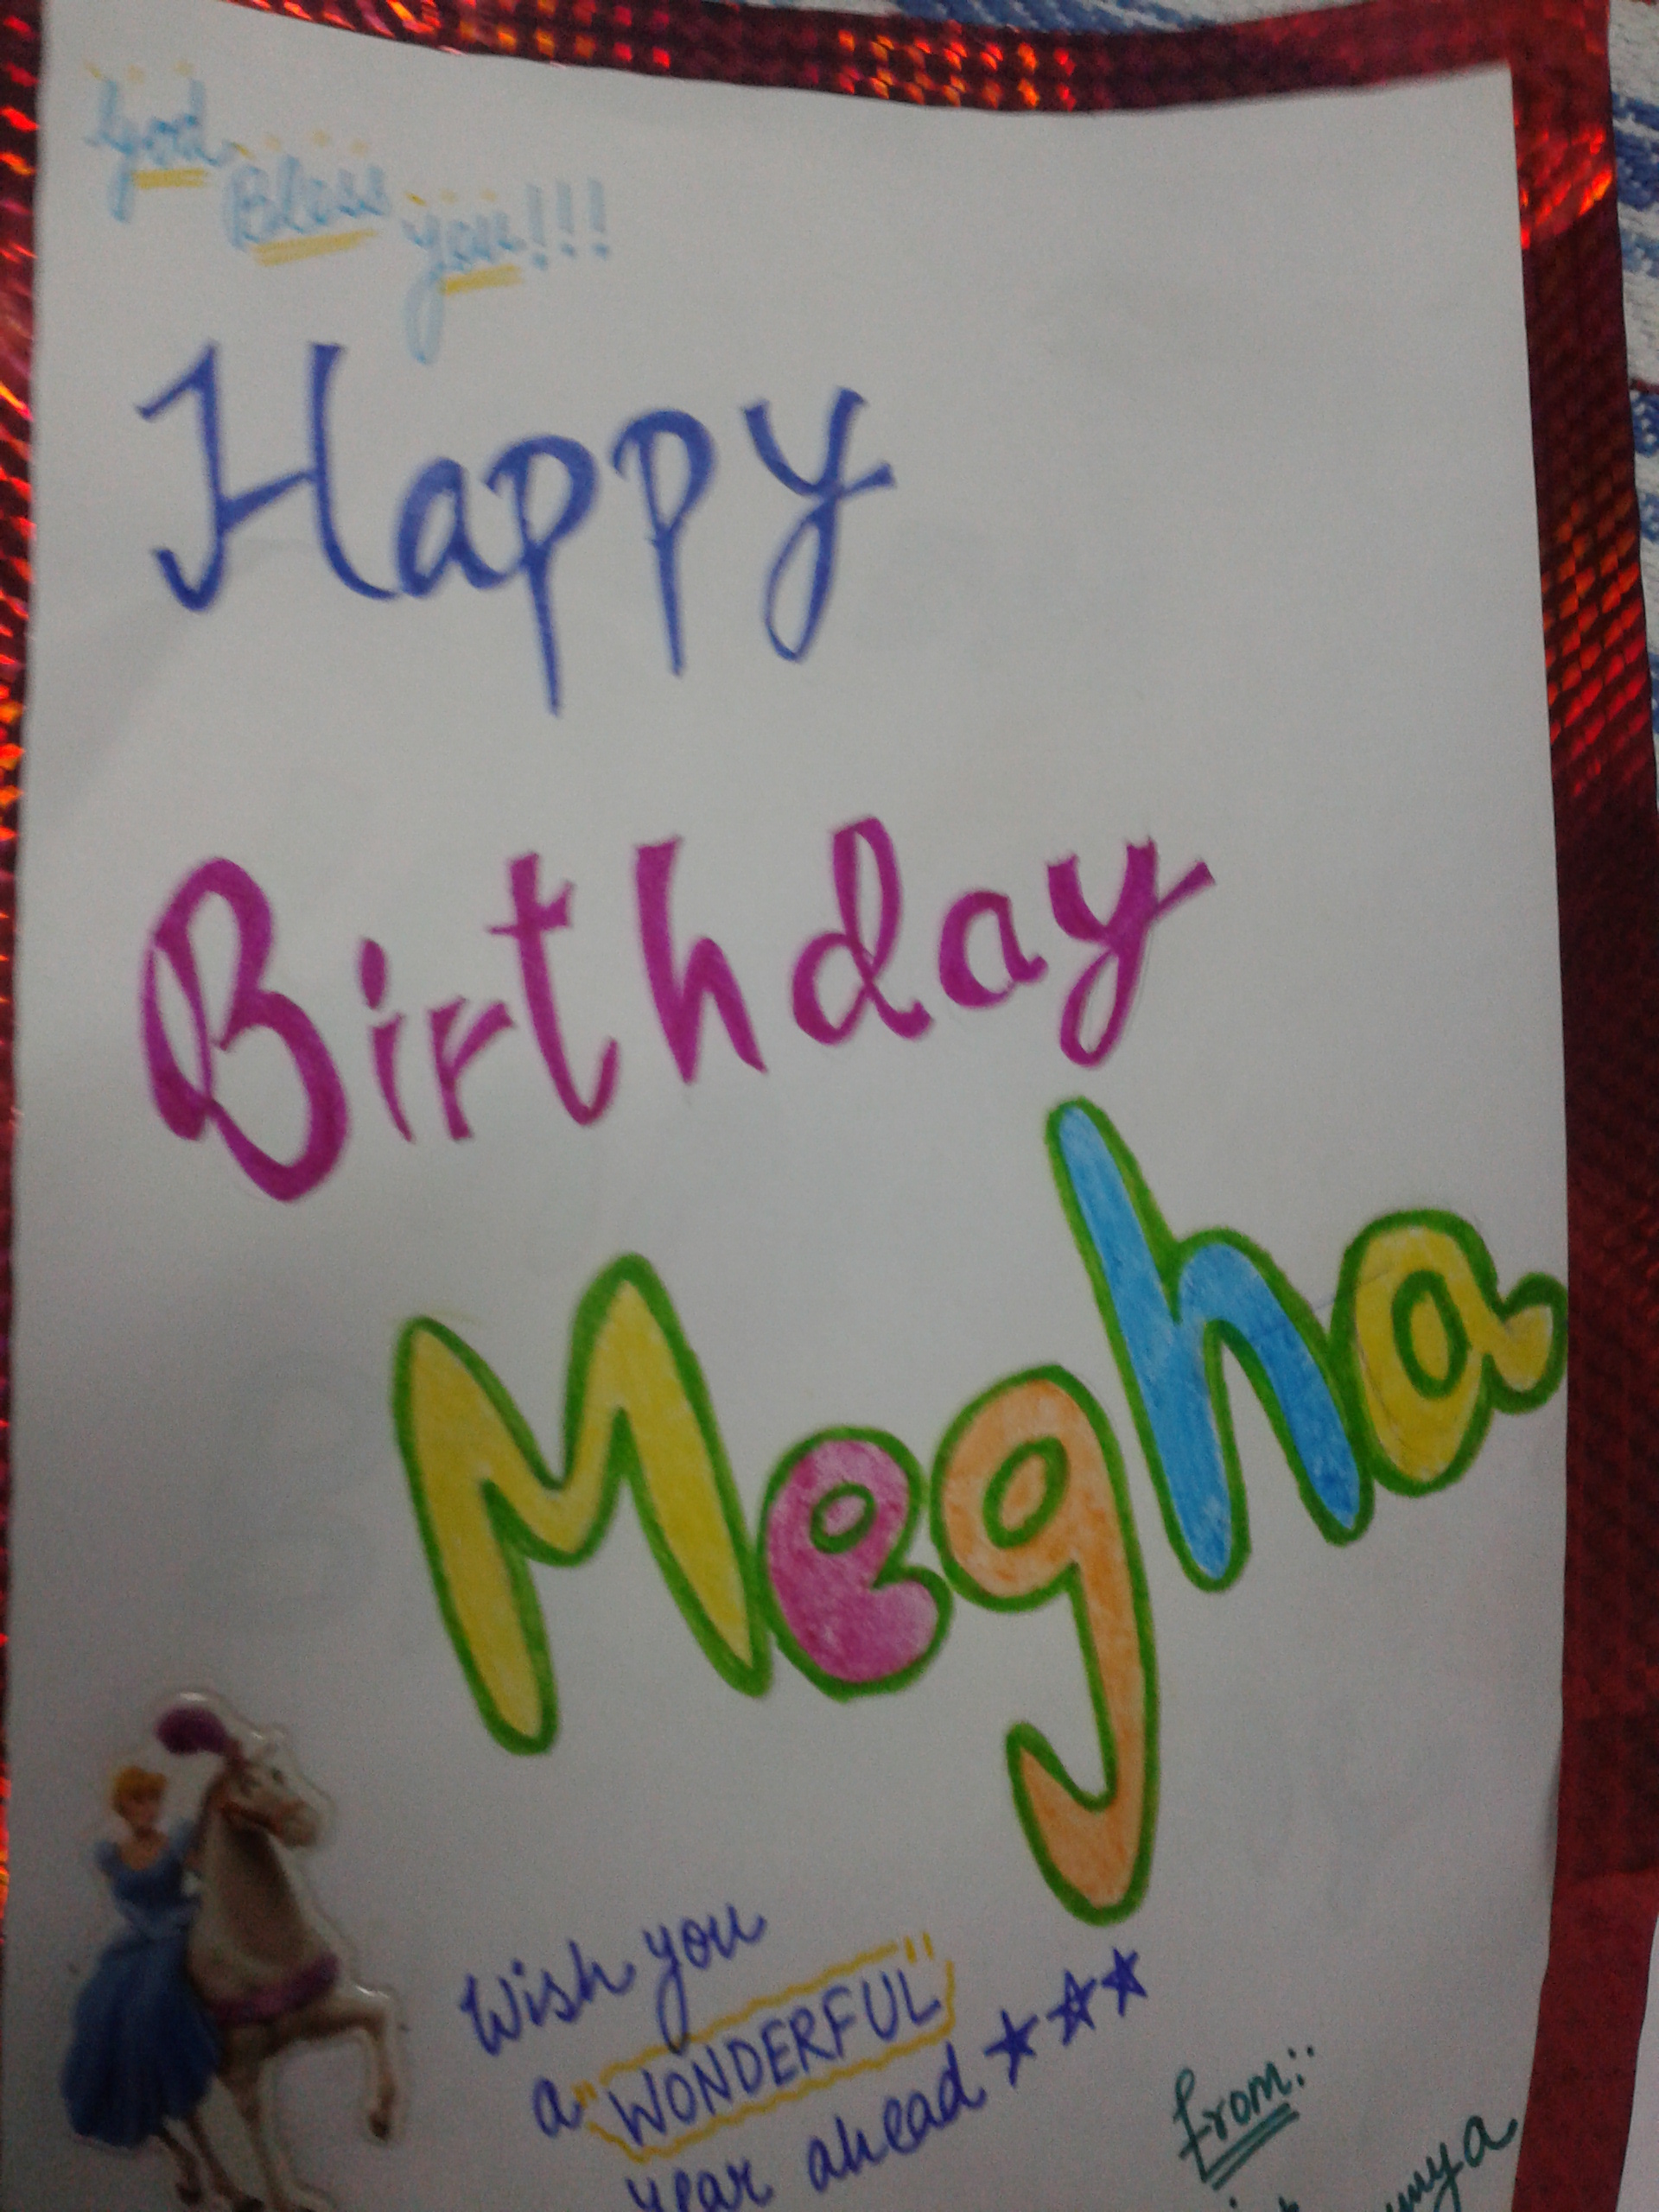 God Bless you!!!
Happy
Birthday
Megha
Wish you
a "WONDERFUL"
year ahead ★★★
From: